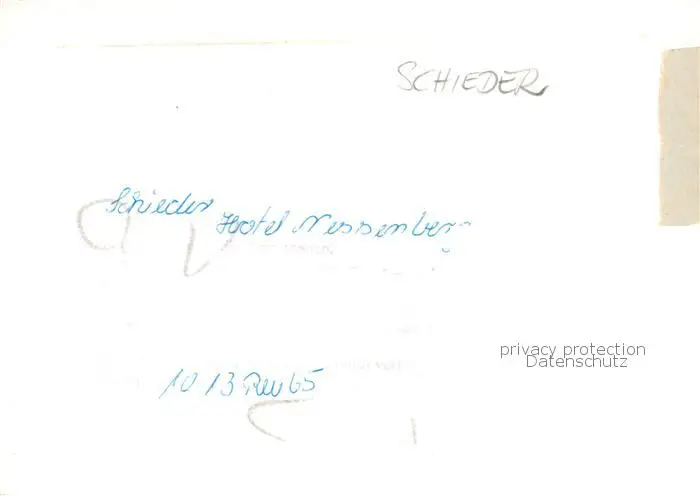 SCHIEDER
Schieder Hotel Nessenberg
10 13 65
privacy protection
Datenschutz